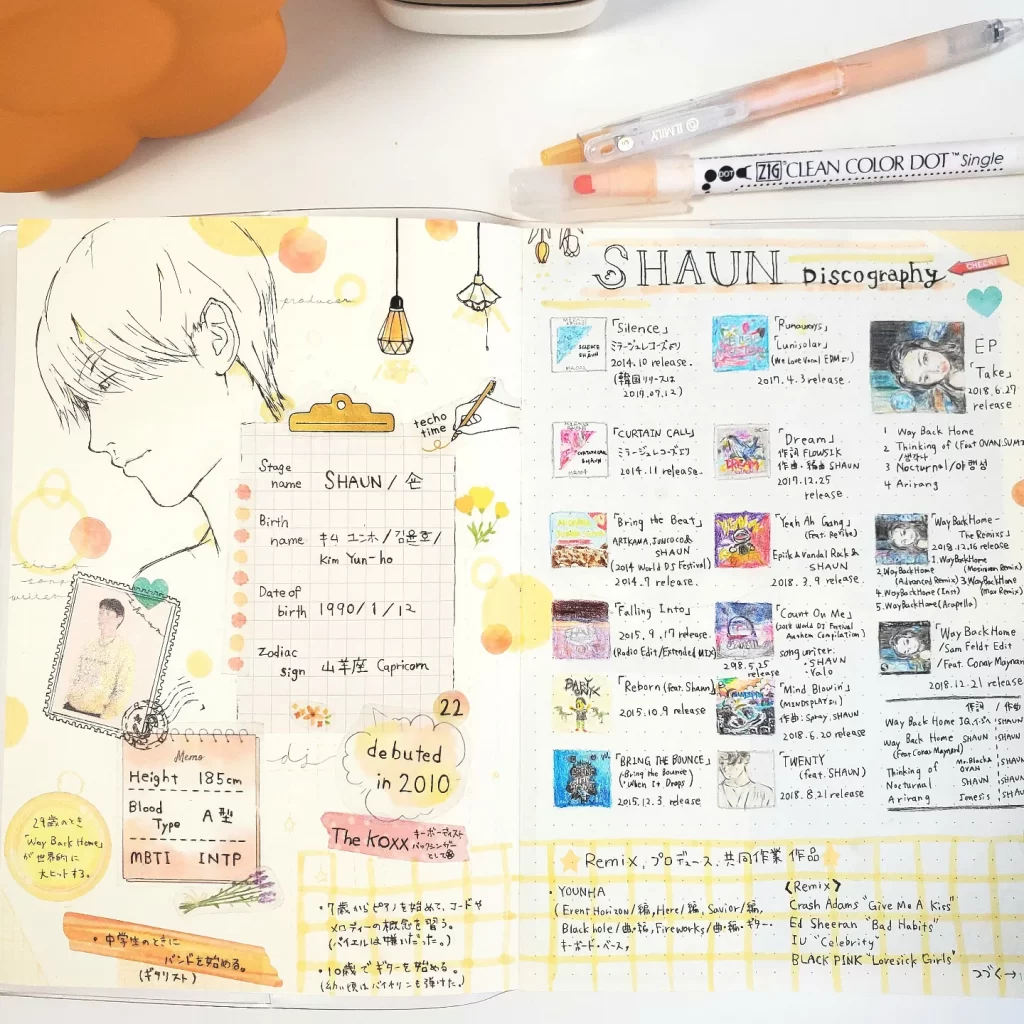 ILMILY
DOT ZIG CLEAN COLOR DOT™ Single
producer
techo
time
Stage
name SHAUN / 숀
Birth
name キム ユンホ / 김윤호 /
Kim Yun-ho
Date of
birth 1990 / 1 / 12
Zodiac
sign 山羊座 Capricorn
22
singer
song
writer
Memo
Height 185cm
Blood
Type A型
MBTI INTP
dj
debuted
in 2010
The KOXX キーボーディスト
バックシンガー
として
29歳のとき
「Way Back Home」
が世界的に
大ヒットする。
・中学生のときに
バンドを始める。
(ギタリスト)
・7歳からピアノを始めて、コードや
メロディーの概念を習う。
(バイエルは嫌いだった。)
・10歳でギターを始める。
(幼い頃はバイオリンも弾けた。)
SHAUN Discography
CHECK!
「Silence」
ミラージュレコーズより
2014.10 release.
(韓国リリースは
2017.07.12)
「CURTAIN CALL」
ミラージュレコーズより
2014.11 release.
「Bring the Beat」
ARIKAMA, JUNCOCO &
SHAUN
(2014 World DJ Festival)
2014.7 release.
「Falling Into」
2015.9.17 release.
(Radio Edit/Extended MIX)
「Reborn (feat. Shaun)」
2015.10.9 release
「BRING THE BOUNCE」
・Bring the Bounce
・When It Drops
2015.12.3 release
「Runaways」
「Lunisolar」
(We Love Vocal EDMより)
2017.4.3 release.
「Dream」
作詞 FLOWSIK
作曲・編曲 SHAUN
2017.12.25
release.
「Yeah Ah Gang」
Epiik & Vandal Rock &
SHAUN
2018.3.9 release.
「Count On Me」
(2018 World DJ Festival
Anthem Compilation)
songwriter.
・SHAUN
・Yalo
release
「Mind Blowin'」
(MINDSPLAYより)
作曲:Spray, SHAUN
2018.6.20 release
TWENTY
(feat. SHAUN)
2018.8.21 release
EP
「Take」
2018.6.27
release
1 Way Back Home
2 Thinking of (Feat OVAN, SUMI
3 Nocturnal/야행성
4 Arirang
「Way Back Home -
The Remixs」
2018.12.16 release
1. Way Back Home
2. Way Back Home
(Advanced Remix) 3. Way Back Home
4. Way Back Home (Inst) (Max Remix)
5. Way Back Home (Acapella)
「Way Back Home
/Sam Feldt Edit
/Feat. Conor Maynard
2018.12.21 release
作詞 / 作曲
Way Back Home SHAUN
Way Back Home SHAUN SHAUN
(Feat Conor Maynard)
Thinking of OVAN SHAUN
Nocturnal SHAUN SHAUN
Arirang Jemesis SHAUN
Remix, プロデュース、共同作業 作品
・YOUNHA
(Event Horizon/編, Here/編, Savior/編,
Black hole/曲・編, Fireworks/曲・編・ギター・
キーボード・ベース,
<Remix>
Crash Adams "Give Me A Kiss"
Ed Sheeran "Bad Habits"
IU "Celebrity"
BLACK PINK "Lovesick Girls"
つづく→